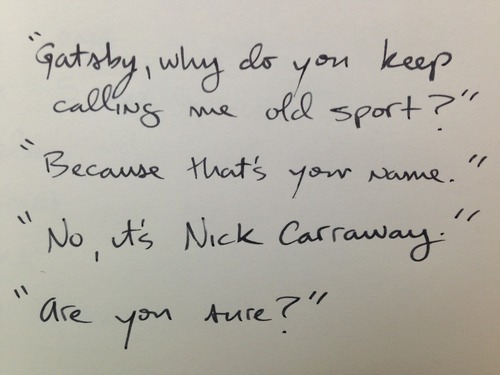 "Gatsby, why do you keep
calling me old sport?"
"Because that's your name."
"No, it's Nick Carraway."
"Are you sure?"